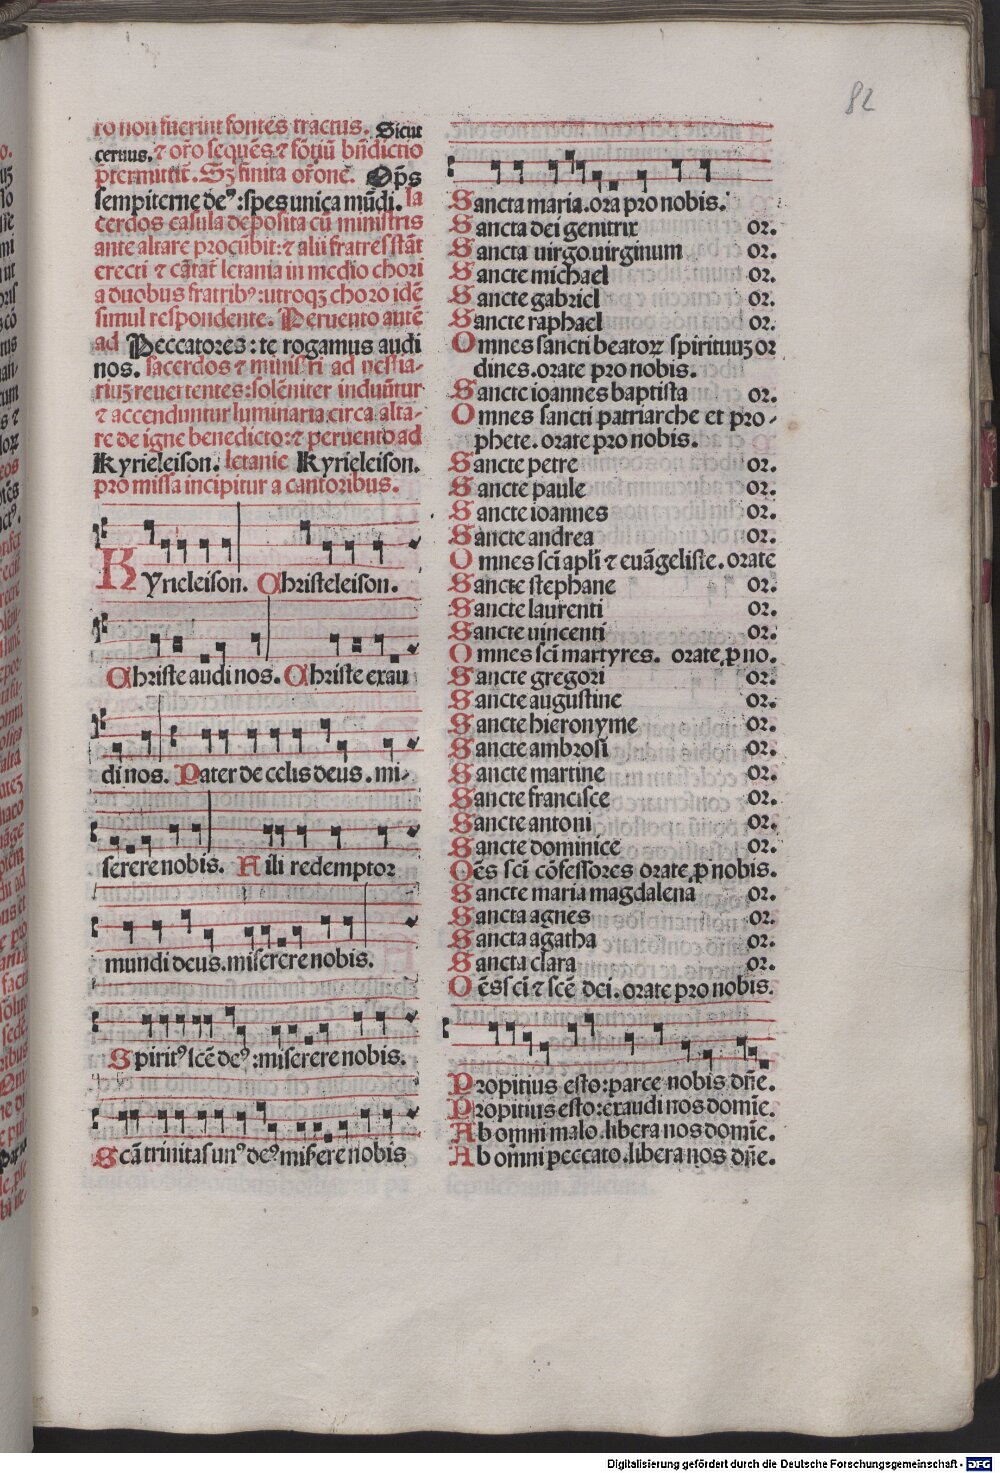 82
ro non fuerint fontes tractus. Sicut
ceruus. ⁊ orõ sequẽs ⁊ fõtiũ bñdictio
p̃termittit̃. Sꝫ finita or̃one. Op̃s
sempiterne deꝰ: spes unica mũdi. sa
cerdos casula deposita cũ ministris
ante altare procũbit: ⁊ alii fratres stãt
erecti ⁊ cãtãt letania in medio chori
a duobus fratribꝰ: utroqꝫ choro idẽ
simul respondente. Peruento autẽ
ad Peccatores: te rogamus audi
nos. sacerdos ⁊ ministri ad vestia-
riuꝫ reuertentes: solẽniter induũtur
⁊ accenduntur luminaria circa alta-
re de igne benedicto: ⁊ peruento ad
Kyrieleison. letanie Kyrieleison.
pro missa incipitur a cantoribus.
Kyrieleison. Christeleison.
Christe audi nos. Christe exau
di nos. Pater de celis deus. mi-
serere nobis. Fili redemptor
mundi deus. miserere nobis.
Spiritꝰ scẽ deꝰ: miserere nobis.
Scã trinitas unꝰ deꝰ miserere nobis
Sancta maria. ora pro nobis.
Sancta dei genitrix or.
Sancta uirgo uirginum or.
Sancte michael or.
Sancte gabriel or.
Sancte raphael or.
Omnes sancti beatoꝝ spirituuꝫ or
dines. orate pro nobis.
Sancte ioannes baptista or.
Omnes sancti patriarche et pro-
phete. orate pro nobis.
Sancte petre or.
Sancte paule or.
Sancte ioannes or.
Sancte andrea or.
Omnes sc̃i apl̃i ⁊ euãgeliste. orate
Sancte stephane or.
Sancte laurenti or.
Sancte uincenti or.
Omnes sc̃i martyres. orate ꝓ no.
Sancte gregori or.
Sancte augustine or.
Sancte hieronyme or.
Sancte ambrosi or.
Sancte martine or.
Sancte francisce or.
Sancte antoni or.
Sancte dominice or.
Oẽs sc̃i cõfessores orate ꝓ nobis.
Sancte maria magdalena or.
Sancta agnes or.
Sancta agatha or.
Sancta clara or.
Oẽs sc̃i ⁊ sc̃e dei. orate pro nobis.
Propitius esto: parce nobis dñe.
Propitius esto: exaudi nos domĩe.
Ab omni malo. libera nos domĩe.
Ab om̃i peccato. libera nos dñe.
Digitalisierung gefördert durch die Deutsche Forschungsgemeinschaft - DFG